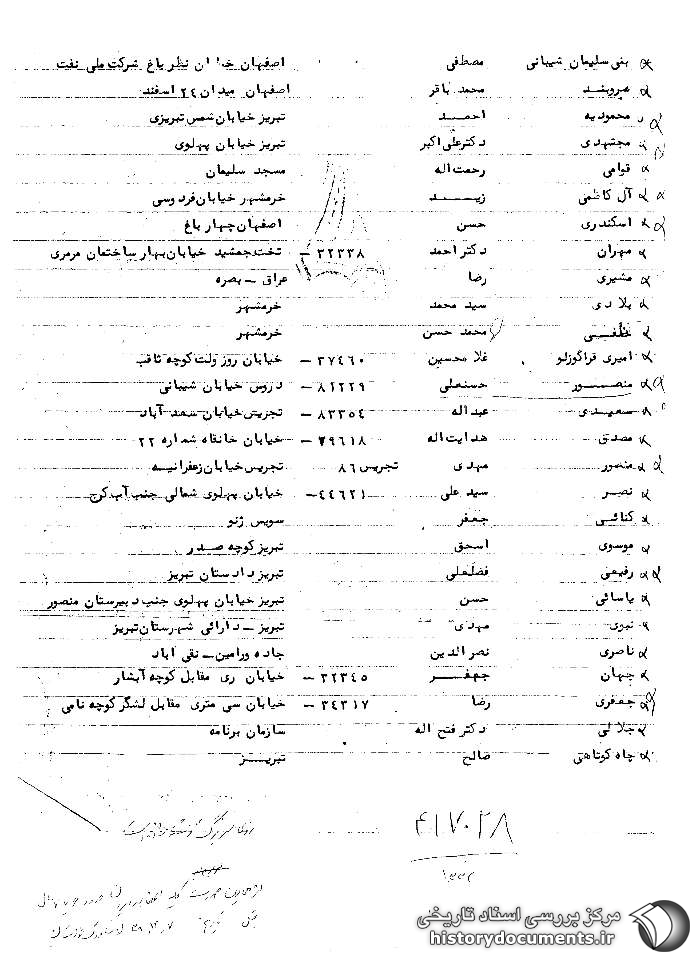 بنی سلیمان شیبانی مصطفی اصفهان خیابان نظر باغ شرکت ملی نفت
محمد باقر اصفهان میدان ۲۴ اسفند
محمودیه احمد تبریز خیابان شمس تبریزی
مجتهدی دکتر علی اکبر تبریز خیابان پهلوی
قوامی رحمت اله مسجد سلیمان
آل کاظمی زیـــد خرمشهر خیابان فردوسی
اسکندری حسن اصفهان چهار باغ
مهران دکتر احمد ۳۲۳۳۸ – تخت جمشید خیابان بهار ساختمان مرمری
مشیری رضا عراق – بصره
بلادی سید محمد خرمشهر
محمد حسن خرمشهر
امیری قراگوزلو غلامحسین ۳۷۴۶۰ – خیابان روزولت کوچه ثاقب
منصـــور حسنعلی ۸۱۲۲۹ – دروس خیابان شیبانی
سعیدی عبداله ۸۳۳۵۴ – تجریش خیابان سعد آباد
مصدق هدایت اله ۷۹۶۱۸ – خیابان خانقاه شماره ۲۲
منصور مهدی تجریش ۸۶ تجریش خیابان زعفرانیه
نصر سید علی ۴۴۶۲۱ – خیابان پهلوی شمالی جنب آب کرج
کنائی جعفر سویس ژنو
موسوی اسحق تبریز کوچه صدر
رفیعی فضلعلی تبریز دادستان تبریز
یاسائی حسن تبریز خیابان پهلوی جنب دبیرستان منصور
نبوی مهدی تبریز – دارائی شهرستان تبریز
ناصری نصرالدین جاده ورامین – نقی آباد
جهان جعفـــر ۳۲۳۴۵ – خیابان ری مقابل کوچه آبشار
جعفری رضا ۳۴۳۱۷ – خیابان سی متری مقابل لشگر کوچه نامی
جلالی دکتر فتح اله سازمان برنامه
چاه کوتاهی صالح تبریـــز
۴۱۷۰۲۸
مرکز بررسی اسناد تاریخی
historydocuments.ir